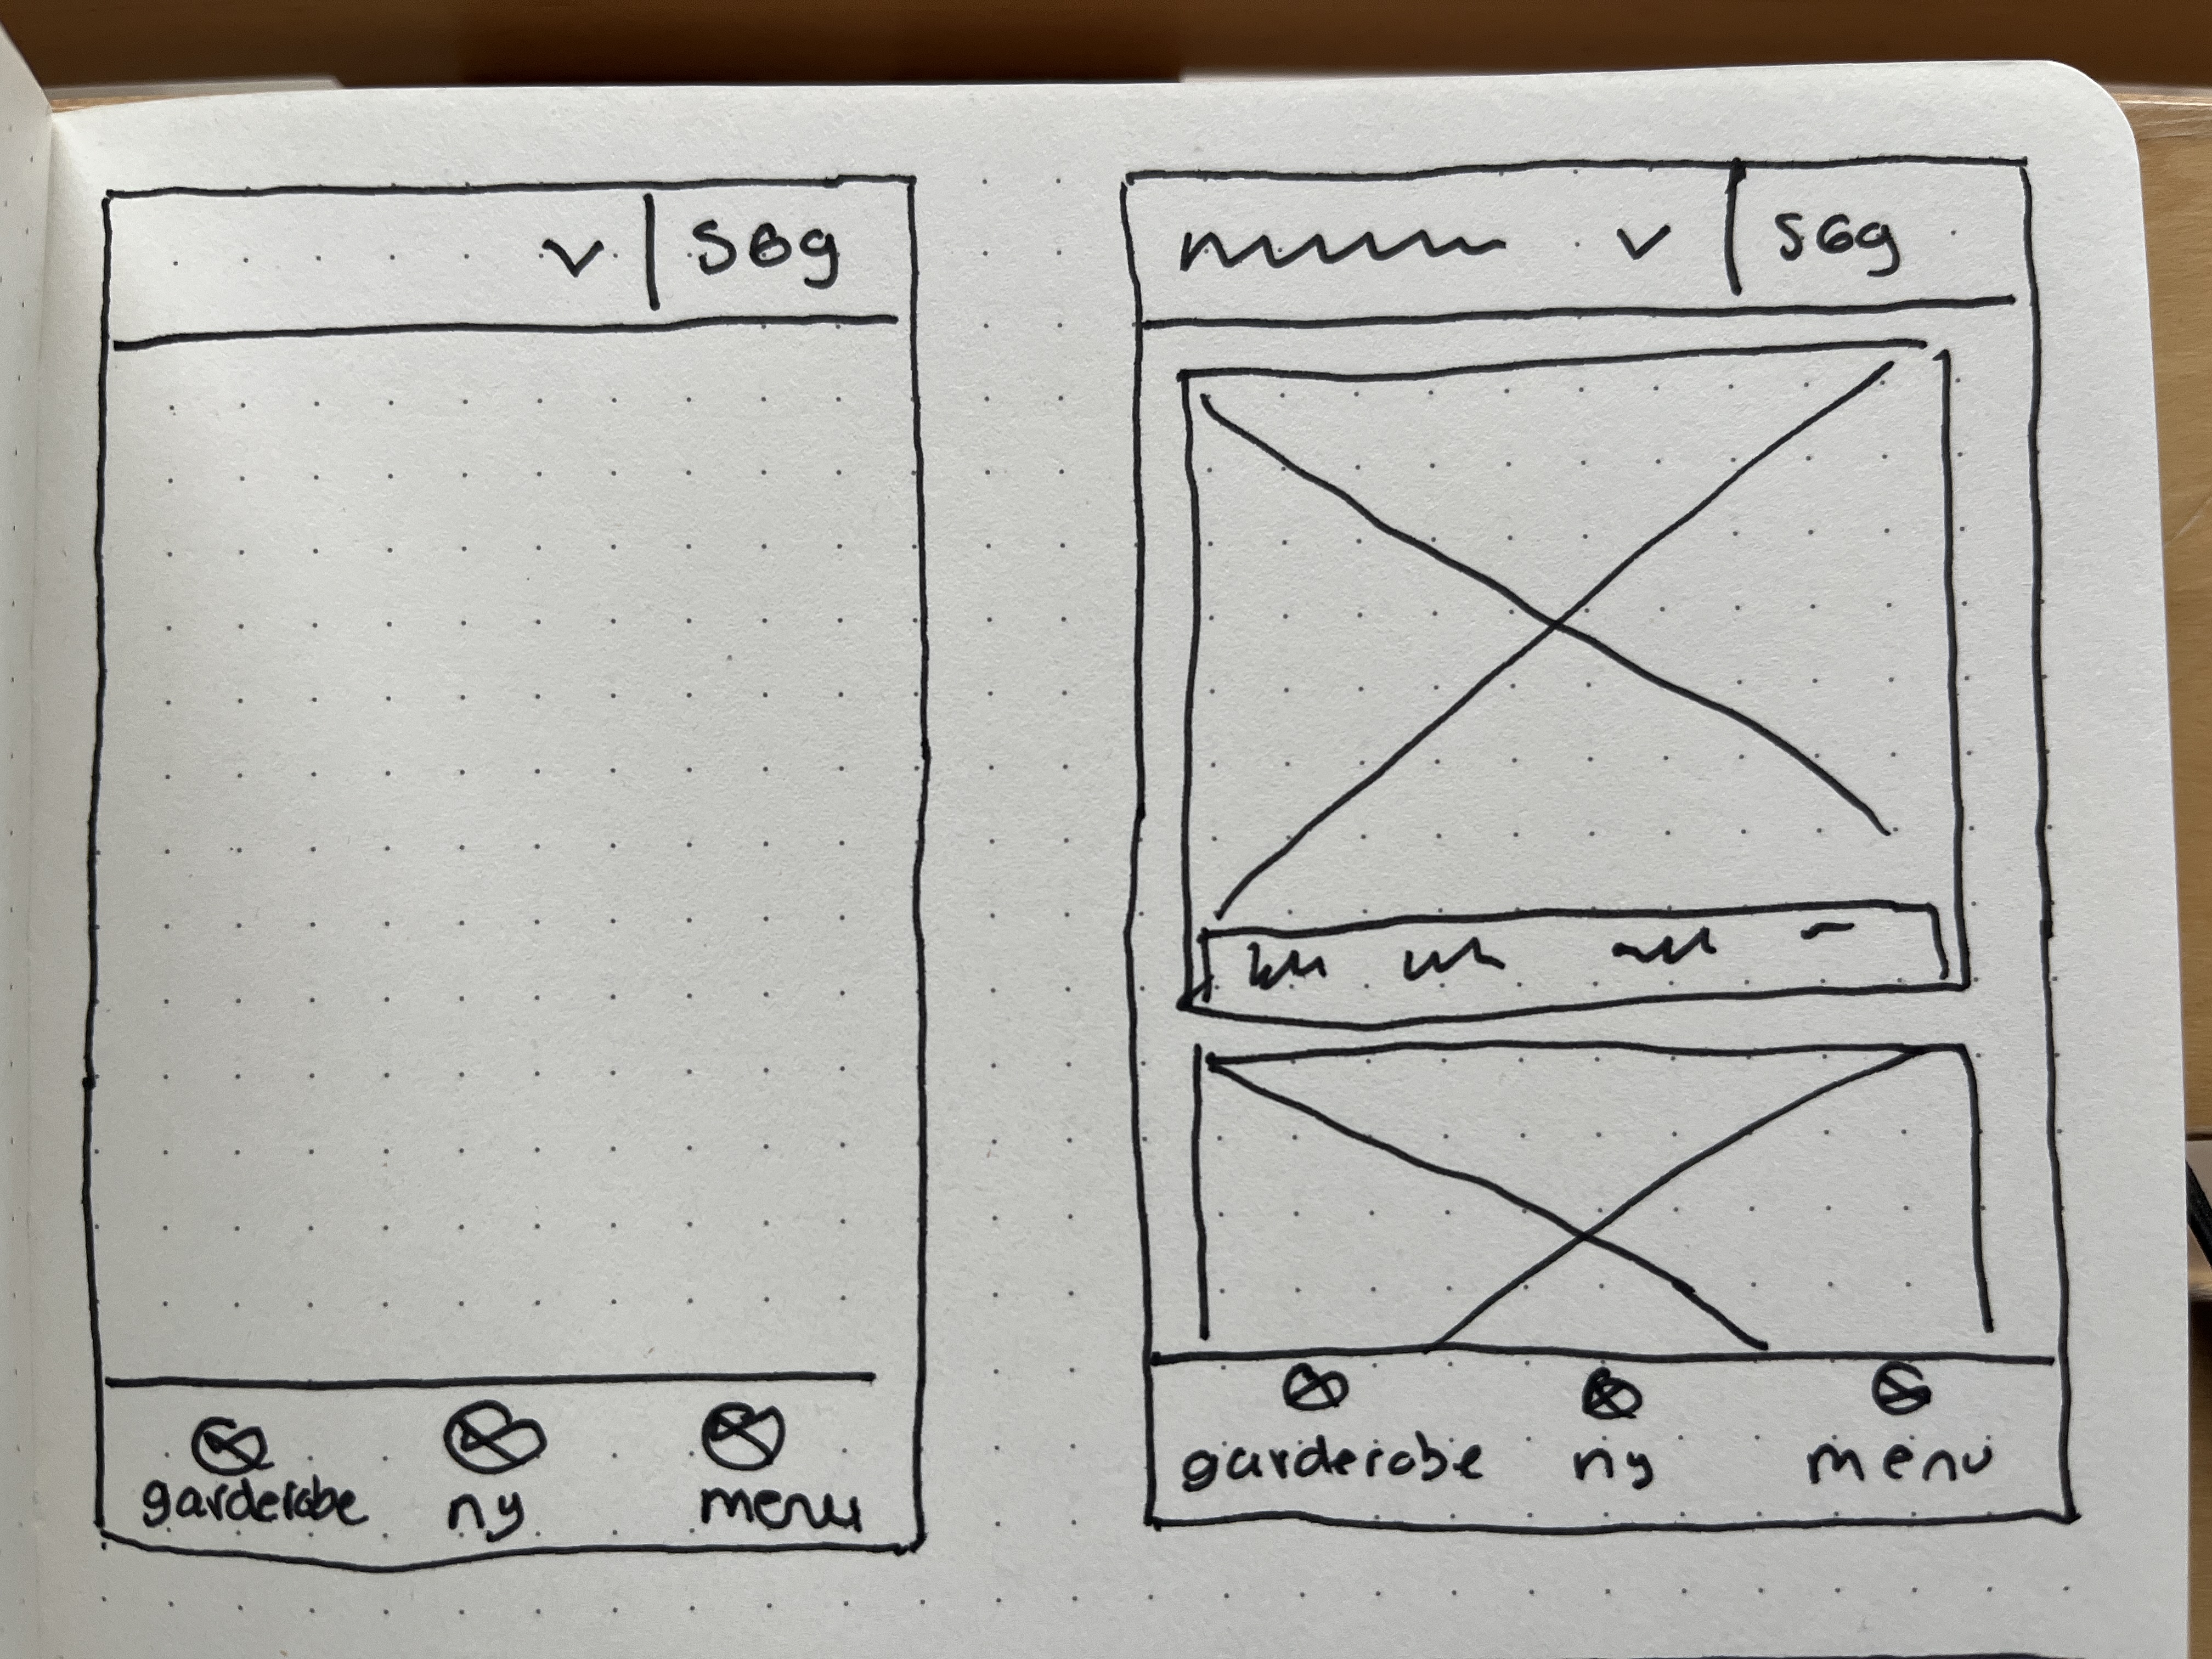 søg
garderobe ny menu
søg
garderobe ny menu